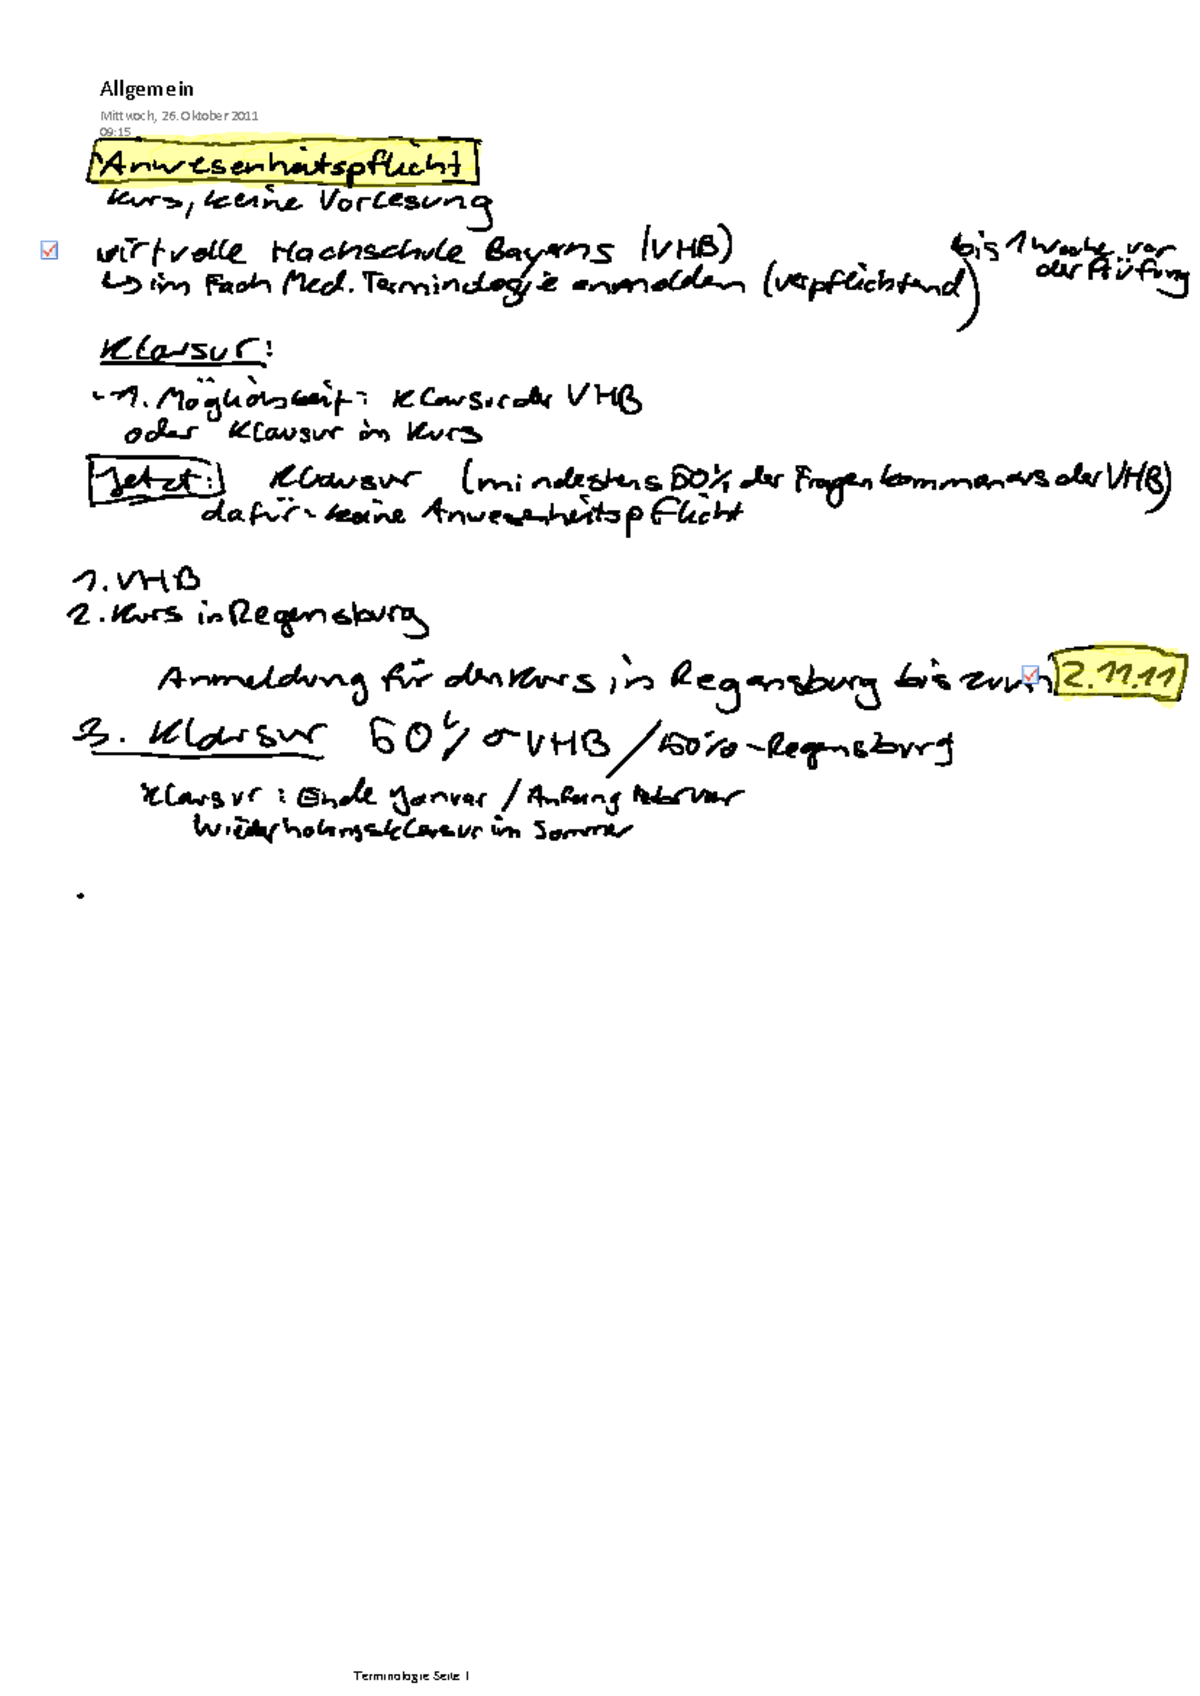 Allgemein
Mittwoch, 26. Oktober 2011
09:15
Anwesenheitspflicht
Kurs, keine Vorlesung
virtuelle Hochschule Bayerns (VHB)
↳ im Fach Med. Terminologie anmelden (verpflichtend)
bis 1 Woche vor
der Prüfung
Klausur:
- 1. Möglichkeit: Klausur der VHB
oder Klausur im Kurs
Jetzt: Klausur (mindestens 50% der Fragen kommen aus der VHB)
dafür - keine Anwesenheitspflicht
1. VHB
2. Kurs in Regensburg
Anmeldung für den Kurs in Regensburg bis zum 2.11.11
3. Klausur 50% VHB / 50% - Regensburg
Klausur: Ende Januar / Anfang Februar
Wiederholungsklausur im Sommer
Terminologie Seite 1